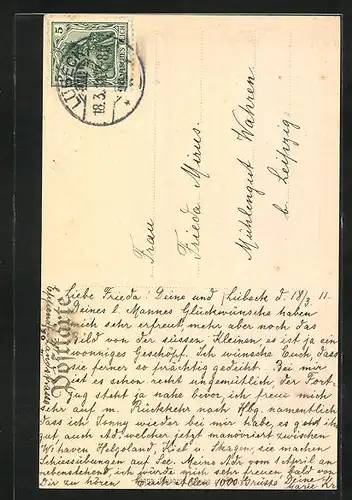 5
DEUTSCHES REICH
LÜBECK
18.3.
Frau
Frieda Mirus.
Mühlengut Wahren
b. Leipzig
Postkarte
Lübeck d. 18/3. 11.
Liebe Frieda. Deine und
Deines l. Mannes Glückwünsche haben
mich sehr erfreut, mehr aber noch das
Bild von der süssen Kleinen, es ist ja ein
wonniges Geschöpf. Ich wünsche Euch, dass
sie ferner so prächtig gedeiht. Bei mir
ist es schon recht ungemütlich, der Fort-
zug steht ja nahe bevor, ich freue mich
sehr auf m. Rückkehr nach Hbg. namentlich
dass ich Tonny wieder bei mir habe, es geht ihr
gut auch Ad. welcher jetzt manövriert zwischen
W'haven Helgoland, Kiel u. Skagen, sie machen
Schiessübungen auf See. Meine Adr. vom 1 April an
nebenstehend, ich würde mich sehr freuen bald von
Dir zu hören Euch Allen 1000 Grüsse Deine